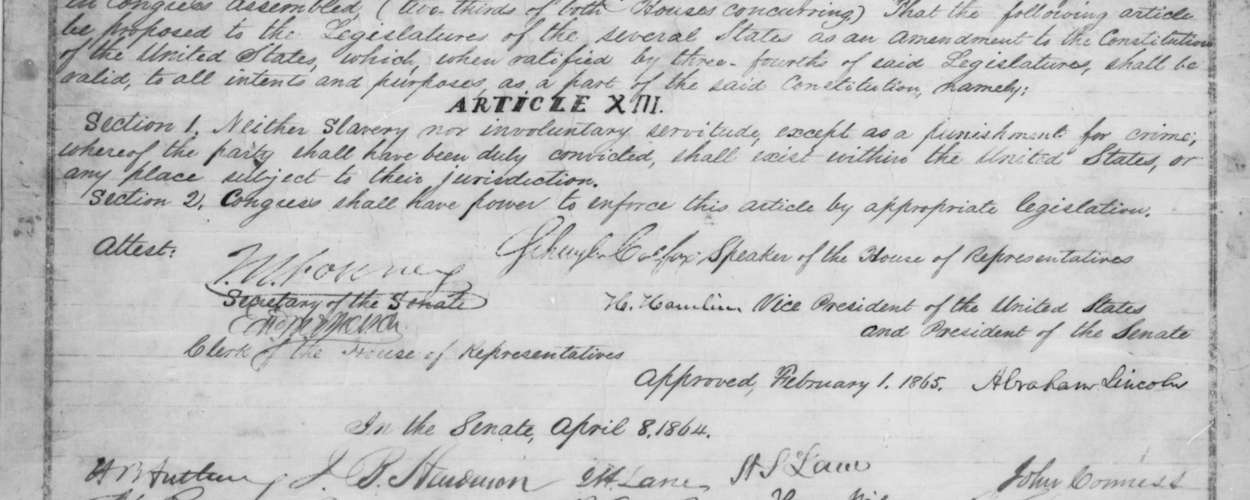 in Congress assembled, (two-thirds of both Houses concurring,) That the following article
be proposed to the Legislatures of the several States as an amendment to the Constitution
of the United States, which, when ratified by three-fourths of said Legislatures, shall be
valid, to all intents and purposes, as a part of the said Constitution, namely:
ARTICLE XIII.
Section 1. Neither Slavery nor involuntary servitude, except as a punishment for crime,
whereof the party shall have been duly convicted, shall exist within the United States, or
any place subject to their jurisdiction.
Section 2. Congress shall have power to enforce this article by appropriate legislation.
Attest:
Schuyler Colfax, Speaker of the House of Representatives
J.W. Forney
Secretary of the Senate
H. Hamlin Vice President of the United States
and President of the Senate
Clerk of the House of Representatives
Approved, February 1. 1865. Abraham Lincoln
In the Senate, April 8, 1864.
J. B. Henderson
J H Lane
H S Lane
John Conness